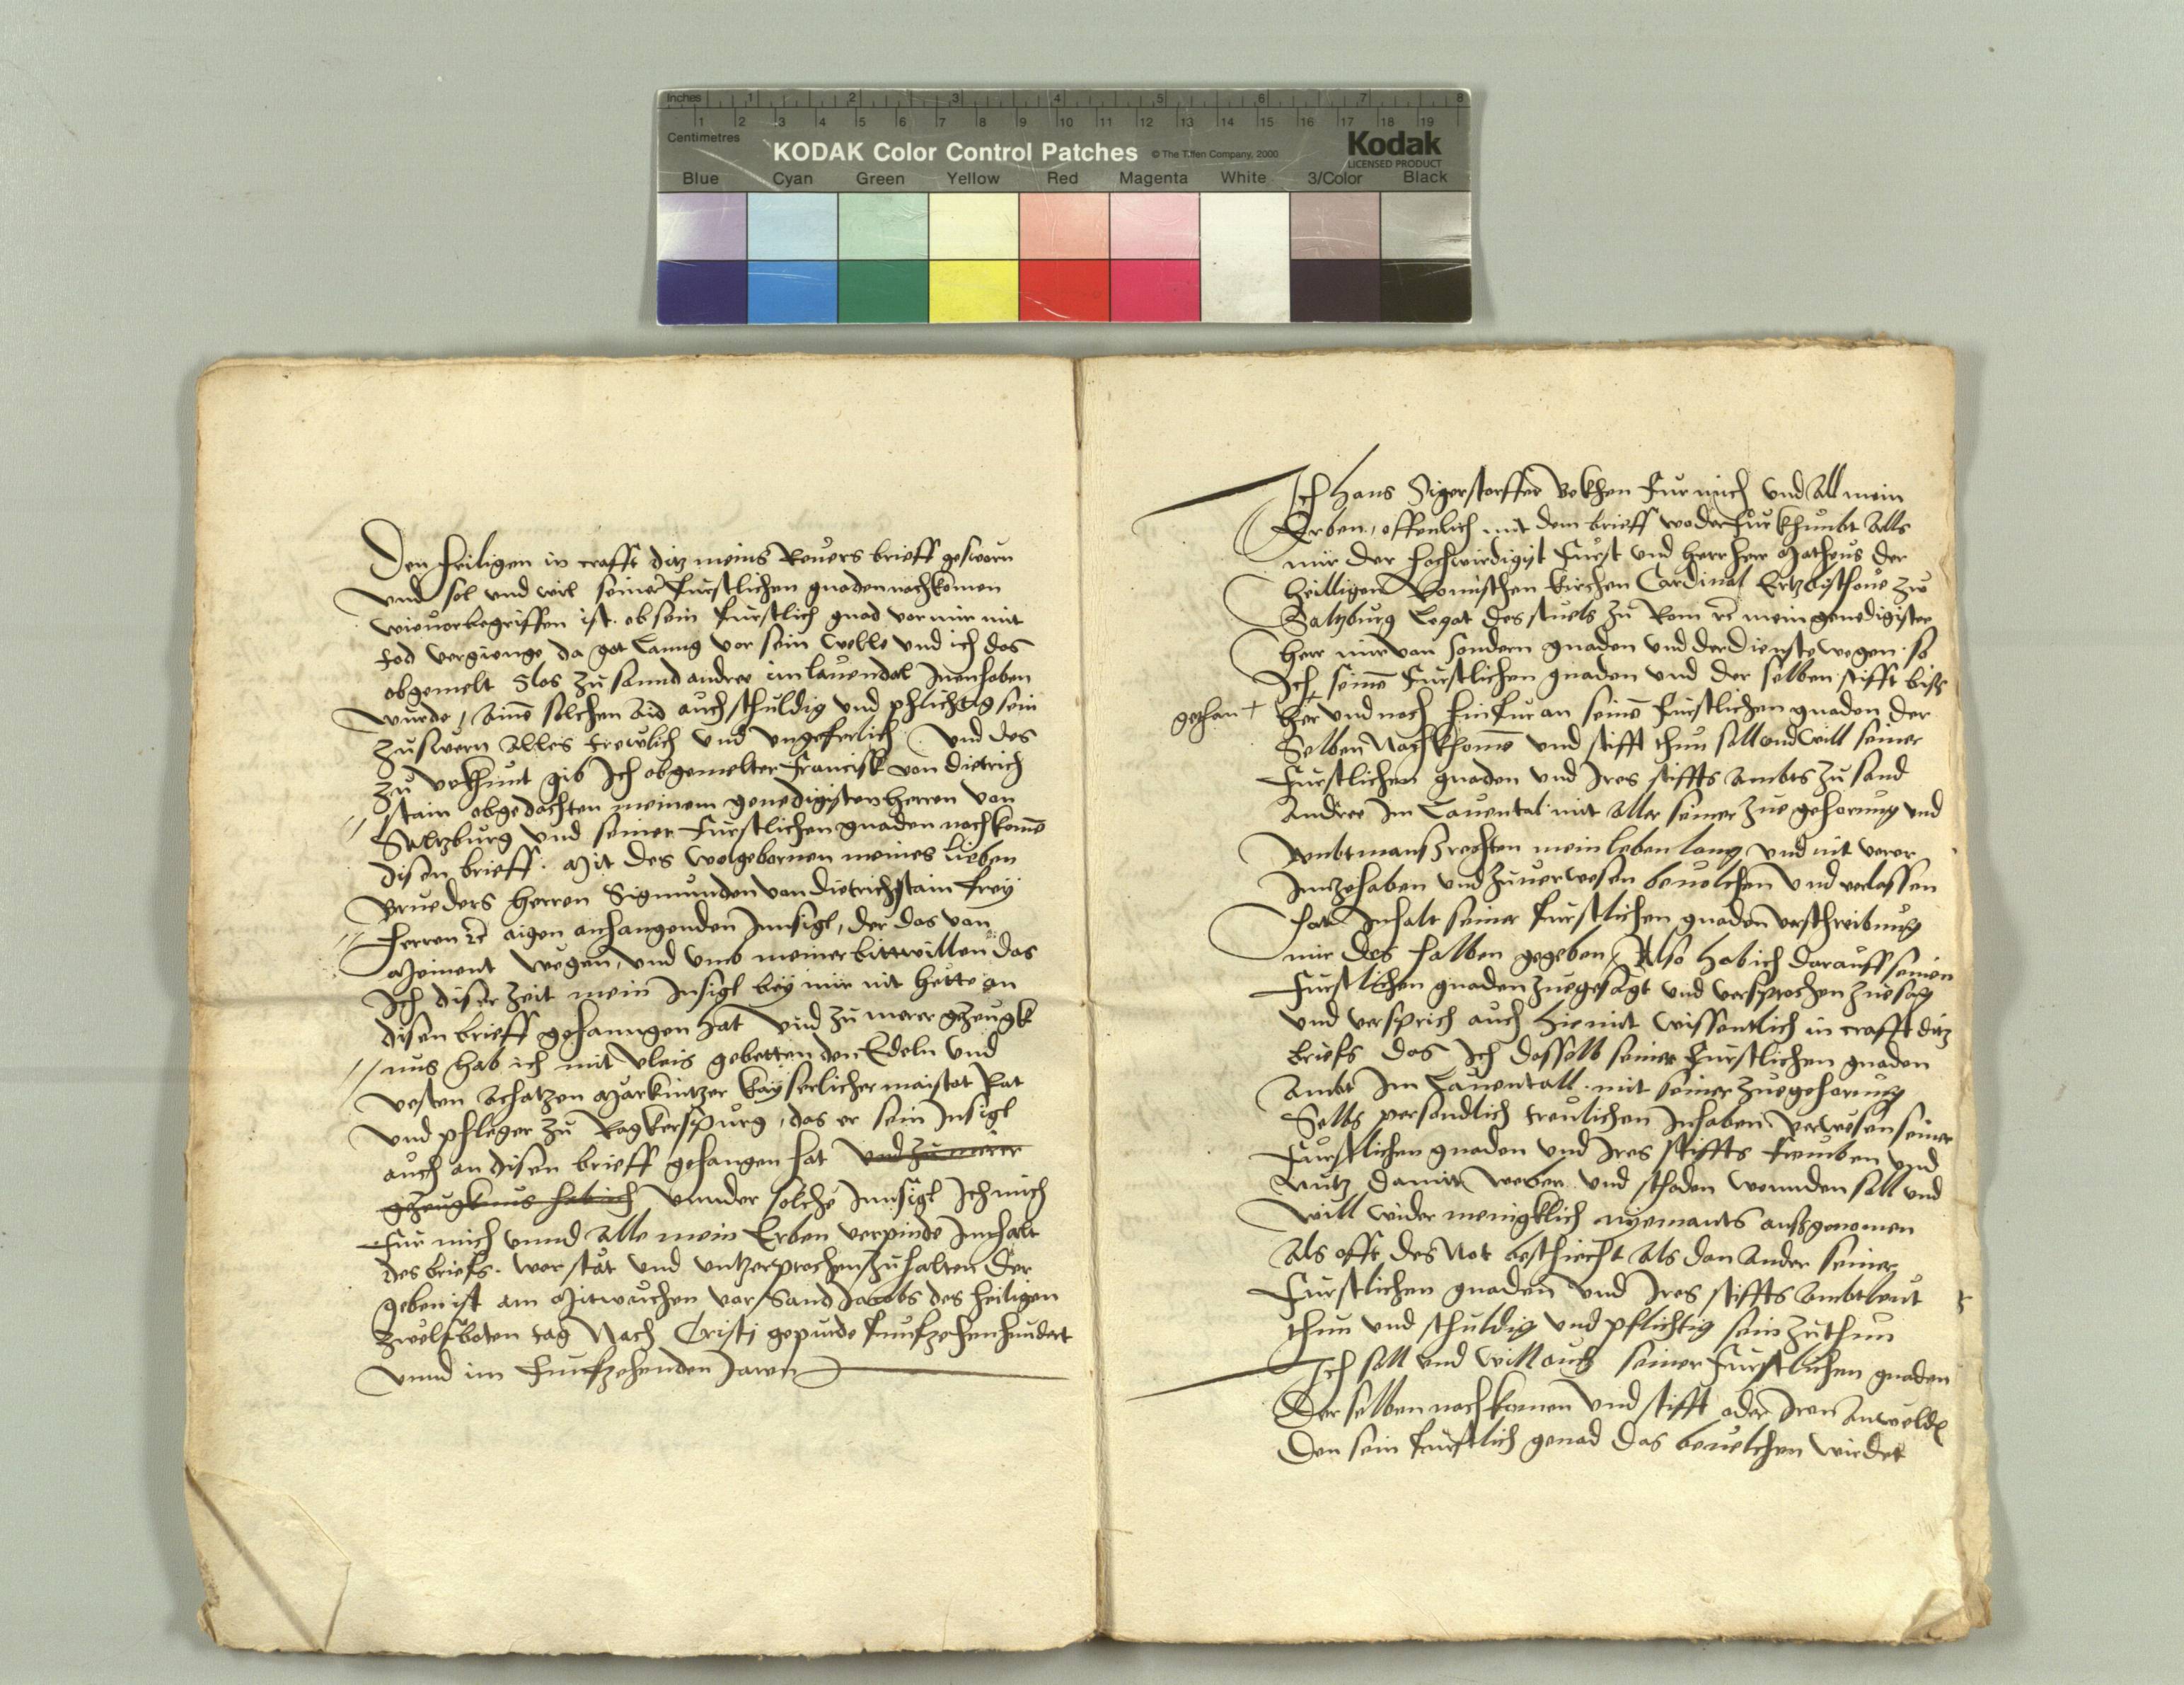 Inches 1 2 3 4 5 6 7 8
Centimetres 1 2 3 4 5 6 7 8 9 10 11 12 13 14 15 16 17 18 19
KODAK Color Control Patches © The Tiffen Company, 2000 Kodak
LICENSED PRODUCT
Blue Cyan Green Yellow Red Magenta White 3/Color Black
Den heiligen in crafft ditz meins Reuers brieff gesworn
vnd sol vnd wil seiner furstlichen gnaden nachkomen
wieuorbegriffen ist. ob sein furstlich gnad vor mir mit
tod vergienge da got lanng vor sein welle vnd ich das
obgemelt Slos zu sannd andree im lauendal Innhaben
wurde / Aine solchen Aid auch schuldig vnd phlichtig sein
zuswern Alles trewlich vnd vngeferlich Vnd des
zu vrkhunt gib Ich obgemelter Francisk von dietrich
// stain obgedachten meinem genedigisten herren von
Saltzburg vnd seiner furstlichen gnaden nachkome
disen brieff. Mit des wolgebornen meines lieben
Brueders herren Sigmunden von dietrichstain frey
// herren rc aigen anhangenden Innsigl, der das von
meinent wegen, vnd vmb meiner bittwillen das
Ich diser zeit mein Insigl bey mir nit hette an
disen brieff gehanngen hat Vnd zu merer gezeugk
// nus hab ich mit vleis gebetten den Edeln vnd
vesten Achatzen Kayserlicher maistat Rat
vnd pfleger zu Ragkerspurg, das er sein Insigl
auch an disen brieff gehangen hat vnd zu merer
gezeugknus hab ich vnnder solche Innsigl Ich mich
fur mich vnnd Alle mein Erben verpinde Innhalt
des briefs. war stat vnd vntzerprochen zuhalten Der
geben ist am Mitwuchen vor Sand Jacobs des heiligen
zwelfboten tag Nach Cristi gepurde funfzehenhundert
vnnd im funfzehenden Jaren
Ich Hans Sigerstorffer Bekhen fur mich vnd All mein
Erben, offenlich mit dem brieff khundt Alls
mir der hochwirdigist furst vnd herr herr Matheus der
heilligen Romischen kirchen Cardinal Ertzbischoue zu
Saltzburg Legat des stuels zu Rom rc mein genedigister
herr mir von sondern gnaden vnd der dienste wegen. so
Ich seine furstlichen gnaden vnd der selben stifft biss
gethan + her vnd noch hinfur an seine furstlichen gnaden der
Selben Nachkhome vnd stifft thun soll vnd will seiner
furstlichen gnaden vnd Ires stiffts Ambts zu sand
Andree Im Lauental mit Aller seiner zuegehorung vnd
Ambtmans rechten mein leben lang vnd nit verer
Innzehaben vnd zuuerwesen beuolchen vnd verlassen
hat Inhalt seiner furstlichen gnaden verschreibung
mir des halben gegeben, Also hab ich darauff seinen
furstlichen gnaden zuegesagt vnd versprochen zuesag
vnd versprich auch hiemit wissentlich in crafft ditz
briefs das Ich dasselb seiner furstlichen gnaden
Ambt Im Lauentall. mit seiner zuegehorung
Selbs persondlich treulichen Inhaben verwesen seiner
furstlichen gnaden vnd Ires stiffts frumben vnd
Nutz damit vnd schaden wennden soll vnd
Will wider menigklich nyemants aussgenomen
Als offt des Not beschiecht Als dan Ander seiner
furstlichen gnaden vnd Ires stiffts Ambtleut
thun vnd schuldig vnd pflichtig sein zuthun
Ich soll vnd will auch seiner furstlichen gnaden
Der selben nachkomen vnd stifft oder Iren
Den sein furstlich genad das beuelchen wirdet